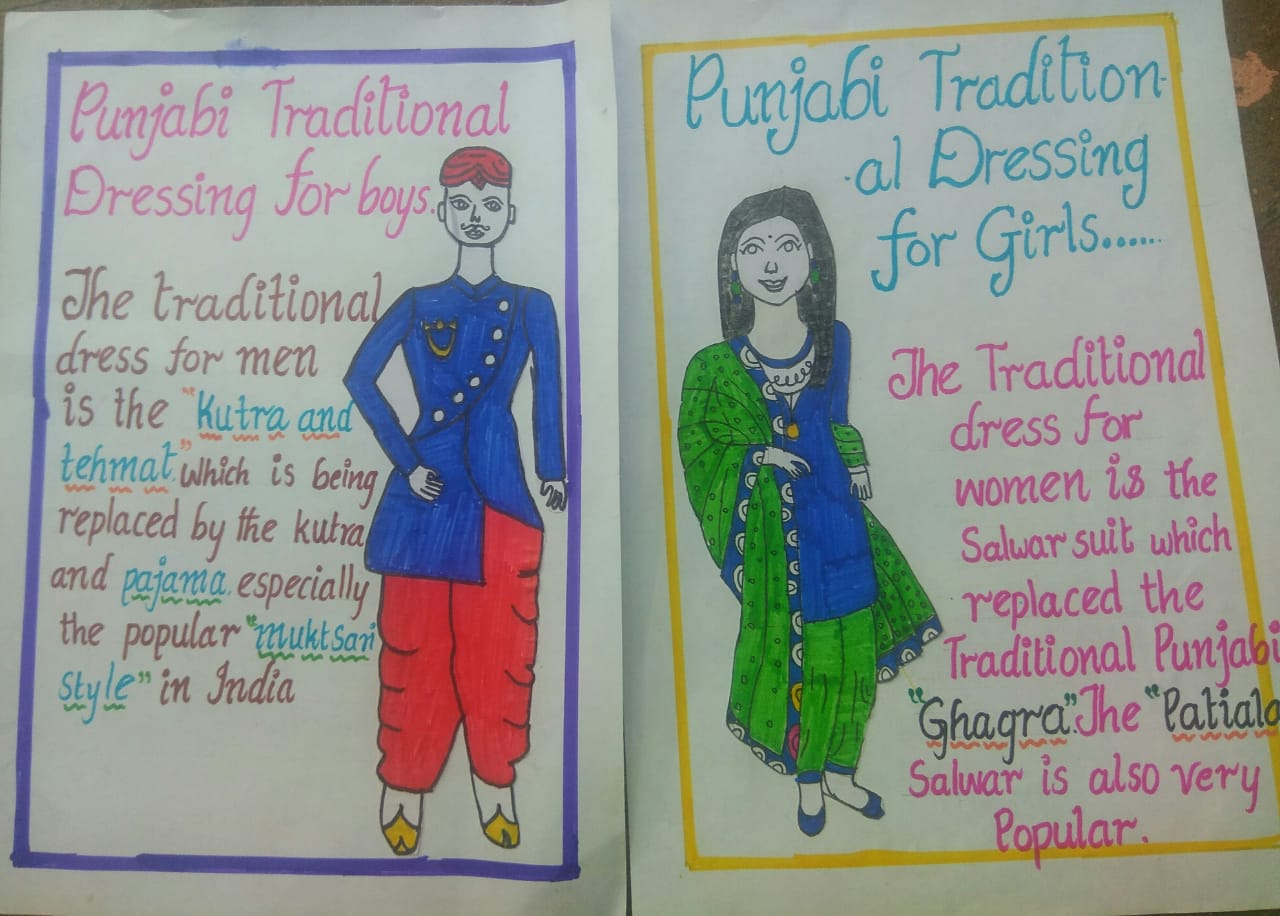 Punjabi Traditional
Dressing for boys.
The traditional
dress for men
is the "Kutra and
tehmat." which is being
replaced by the kutra
and pajama. especially
the popular "Muktsari
Style" in India
Punjabi Tradition-
-al Dressing
for Girls......
The Traditional
dress for
women is the
Salwar suit which
replaced the
Traditional Punjabi
"Ghagra". The "Patiala
Salwar is also very
Popular.